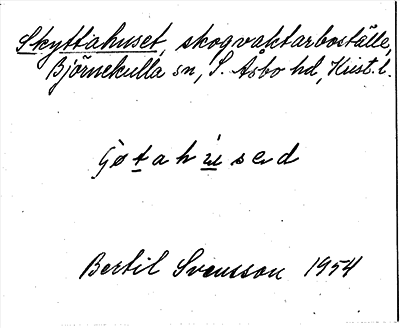 Skyttahuset, skogvaktarboställe,
Björnekulla sn, S. Åsbo hd, Krist. l.
Bertil Svensson 1954